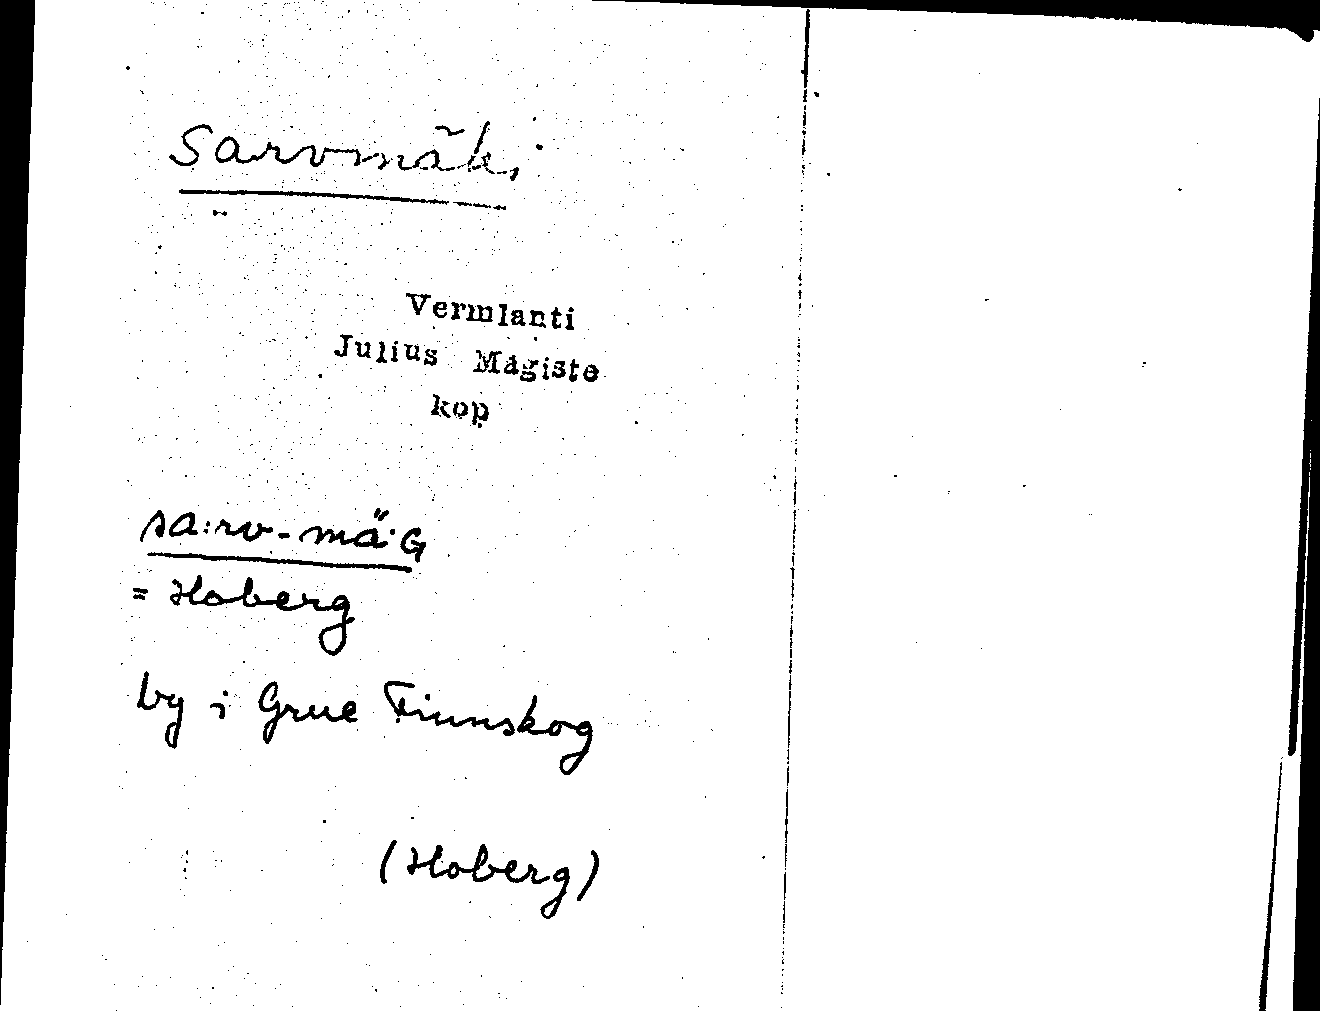 Sarvmäki
Vermlanti
Julius Mägiste
kop
sa:rv-mä·G
= Hoberg
by i Grue Finnskog
(Hoberg)